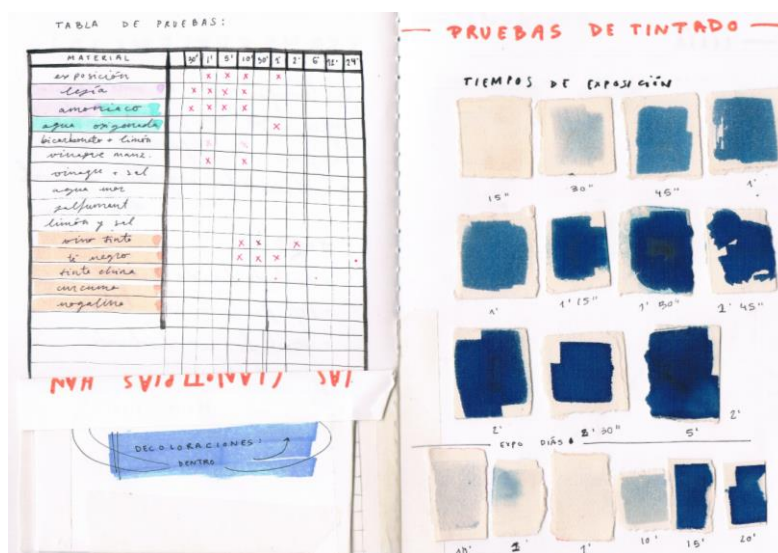 TABLA DE PRUEBAS:
MATERIAL 30' 1' 5' 10' 30' 1' 2' 6' 12' 24'
exposición x x x x
lejía x x x x
amoniaco x x x x
agua oxigenada x
bicarbonato + limón x x
vinagre manz. x x
vinagre + sal
agua mar
salfumant
limón y sal
vino tinto x x x
té negro x x x
tinta china
curcuma
nogalina
LAS CIANOTIPIAS HAN
DECOLORACIONES:
DENTRO
PRUEBAS DE TINTADO
TIEMPOS DE EXPOSICIÓN
15" 30" 45" 1'
1' 1' 15" 1' 30" 1' 45"
2' 2' 30" 5' 2'
EXPO DIÁS
1' 1' 10' 15' 20'